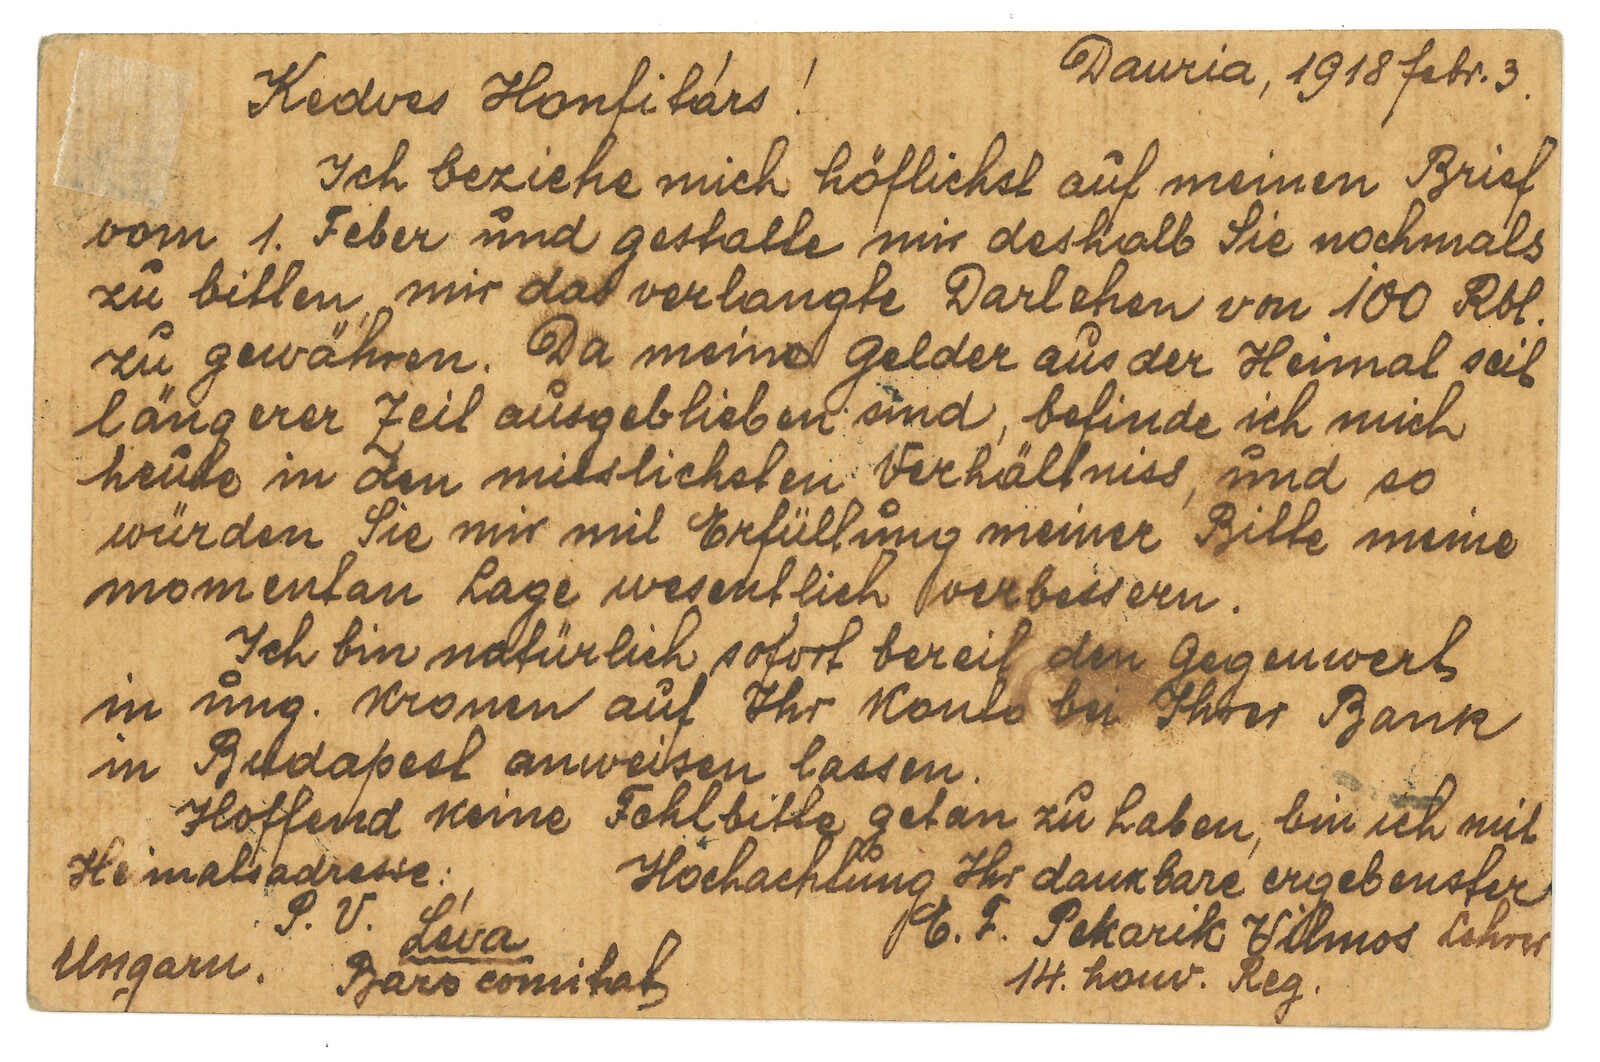 Dauria, 1918 febr. 3.
Kedves Honfitárs!
Ich beziehe mich höflichst auf meinen Brief
vom 1. Feber und gestatte mir deshalb Sie nochmals
zu bitten, mir das verlangte Darlehen von 100 Rbl.
zu gewähren. Da meine Gelder aus der Heimat seit
längerer Zeit ausgeblieben sind, befinde ich mich
heute in den misslichsten Verhältniss, und so
würden Sie mir mit Erfüllung meiner Bitte meine
momentan Lage wesentlich verbessern.
Ich bin natürlich sofort bereit den Gegenwert
in ung. Kronen auf Ihr Konto bei Ihrer Bank
in Budapest anweisen lassen.
Hoffend keine Fehlbitte getan zu haben, bin ich mit
Heimatsadresse: Hochachtung Ihr dankbare ergebenster
P. V. E. F. Pekarik Vilmos Lehrer
Léva
Ungarn. Bars comitat 14. honv. Reg.